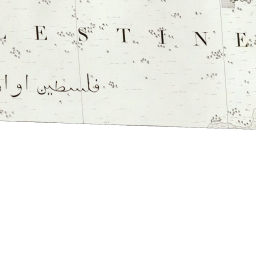 ESTINE
فلسطين او ا